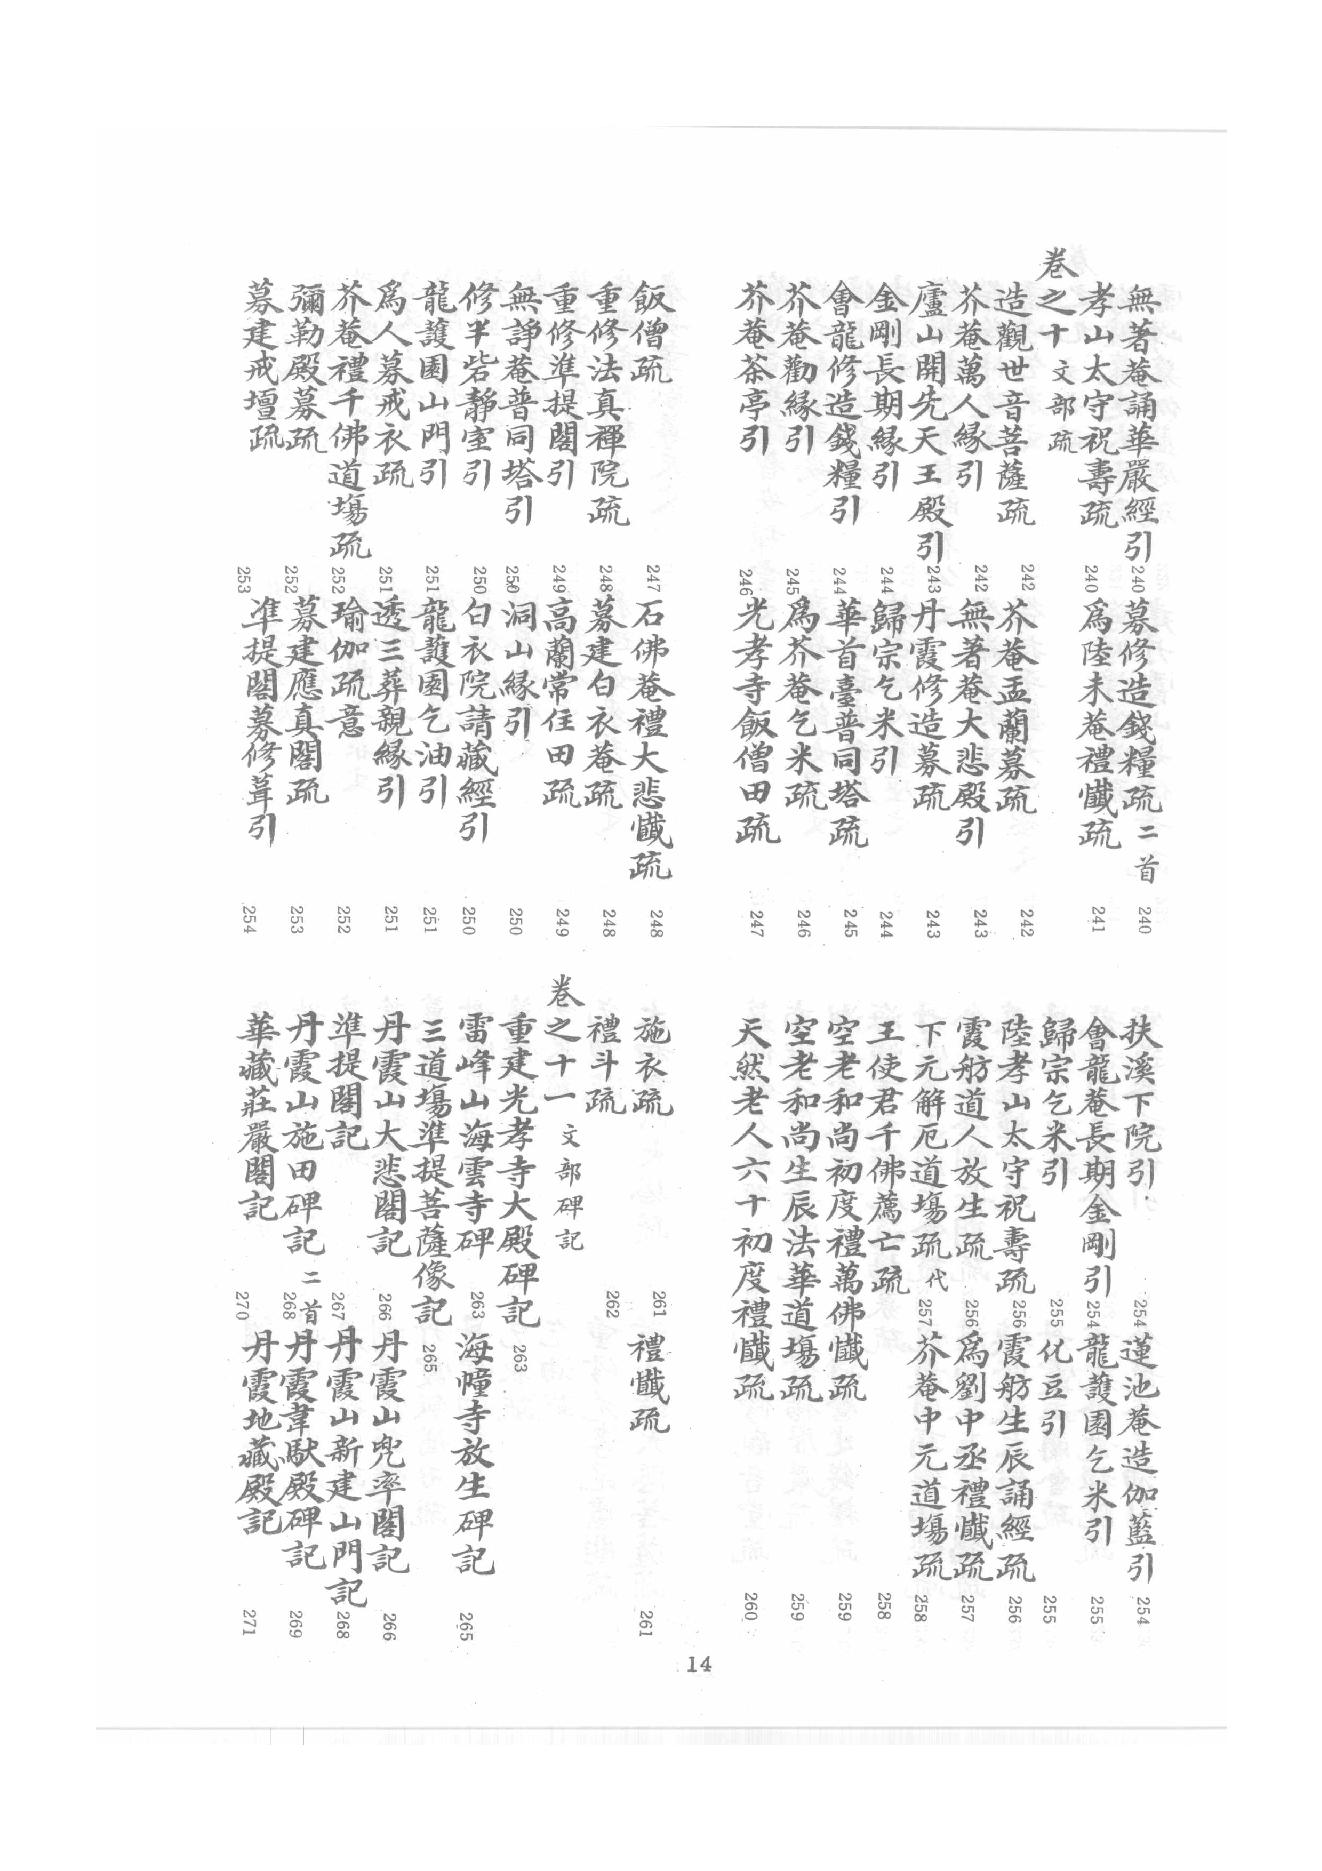 無著菴誦華嚴經引 240 募修造錢糧疏 二首 240
孝山太守祝壽疏 240 爲陸未菴禮懺疏 241
卷之十 文部疏
造觀世音菩薩疏 242 芥菴盂蘭募疏 242
芥菴萬人緣引 242 無著菴大悲殿引 243
廬山開先天王殿引 243 丹霞修造募疏 243
金剛長期緣引 244 歸宗乞米引 244
會龍修造錢糧引 244 華首臺普同塔疏 245
芥菴勸緣引 245 爲芥菴乞米疏 246
芥菴茶亭引 246 光孝寺飯僧田疏 247
飯僧疏 247 石佛菴禮大悲懺疏 248
重修法真禪院疏 248 募建白衣菴疏 248
重修準提閣引 249 高蘭常住田疏 249
無諍菴普同塔引 250 洞山緣引 250
修半砦靜室引 250 白衣院請藏經引 250
龍護園山門引 251 龍護園乞油引 251
爲人募戒衣疏 251 透三葬親緣引 251
芥菴禮千佛道場疏 252 瑜伽疏意 252
彌勒殿募疏 252 募建應真閣疏 253
募建戒壇疏 253 準提閣募修葺引 254
扶溪下院引 254 蓮池菴造伽藍引 254
會龍菴長期金剛引 254 龍護園乞米引 255
歸宗乞米引 255 化豆引 255
陸孝山太守祝壽疏 256 霞舫生辰誦經疏 256
霞舫道人放生疏 256 爲劉中丞禮懺疏 257
下元解厄道場疏 代 257 芥菴中元道場疏 258
王使君千佛薦亡疏 258
空老和尚初度禮萬佛懺疏 259
空老和尚生辰法華道場疏 259
天然老人六十初度禮懺疏 260
施衣疏 261 禮懺疏 261
禮斗疏 262
卷之十一 文部碑記
重建光孝寺大殿碑記 263
雷峰山海雲寺碑 263 海幢寺放生碑記 265
三道場準提菩薩像記 265
丹霞山大悲閣記 266 丹霞山兜率閣記 266
準提閣記 267 丹霞山新建山門記 268
丹霞山施田碑記 二首 268 丹霞韋馱殿碑記 269
華藏莊嚴閣記 270 丹霞地藏殿記 271
14